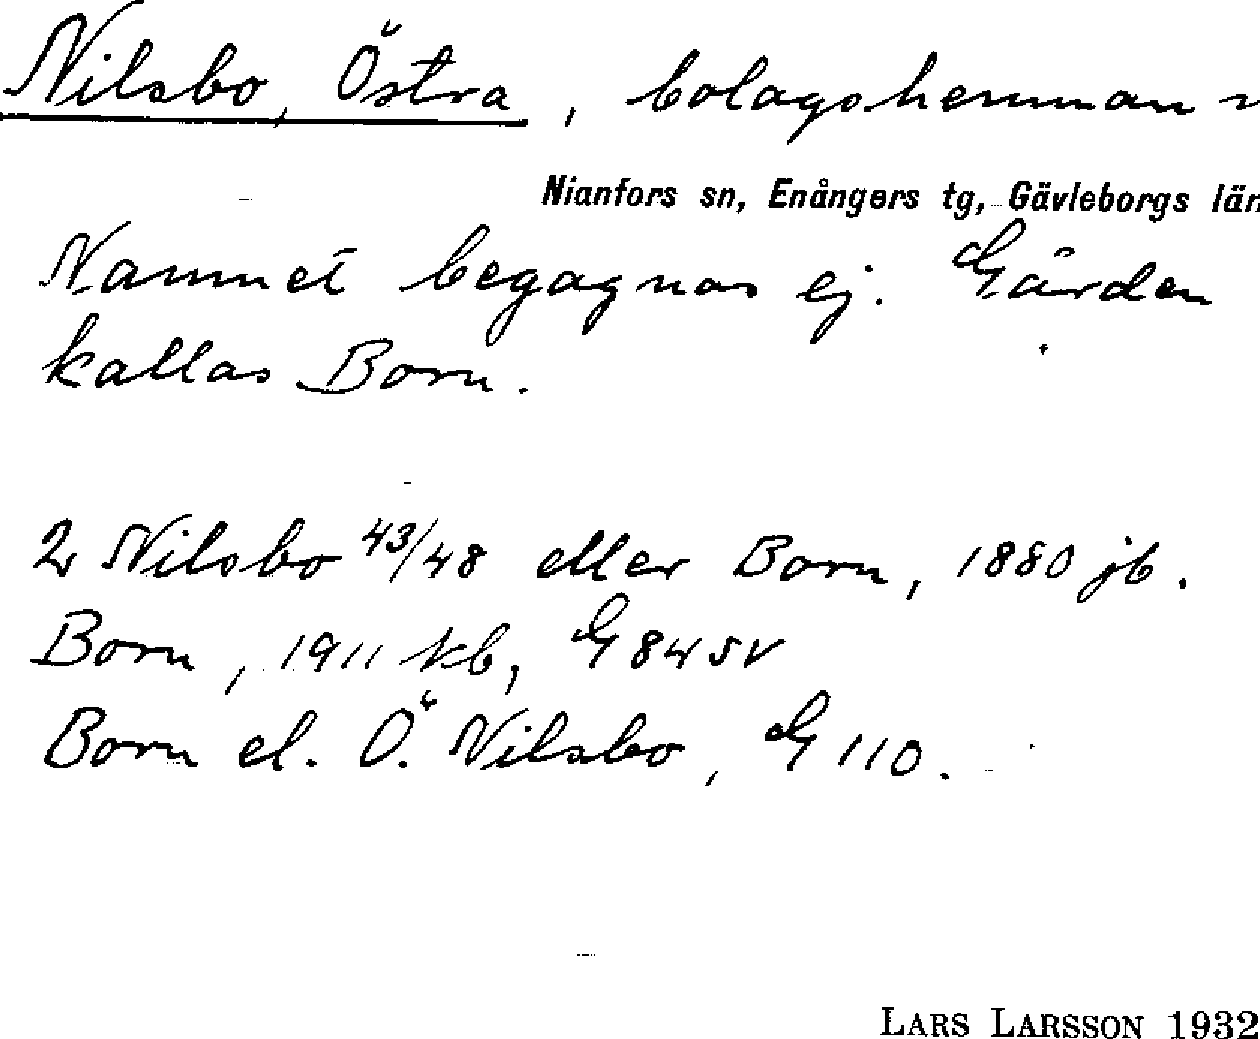 Nilsbo, Östra, bolagshemman
Nianfors sn, Enångers tg, Gävleborgs län
Namnet begagnas ej. Gården
kallas Born.
2 Nilsbo 43/48 eller Born, 1880 jb.
Born, 1911 kb, G 84 sv
Born el. Ö. Nilsbo, G 110.
LARS LARSSON 1932